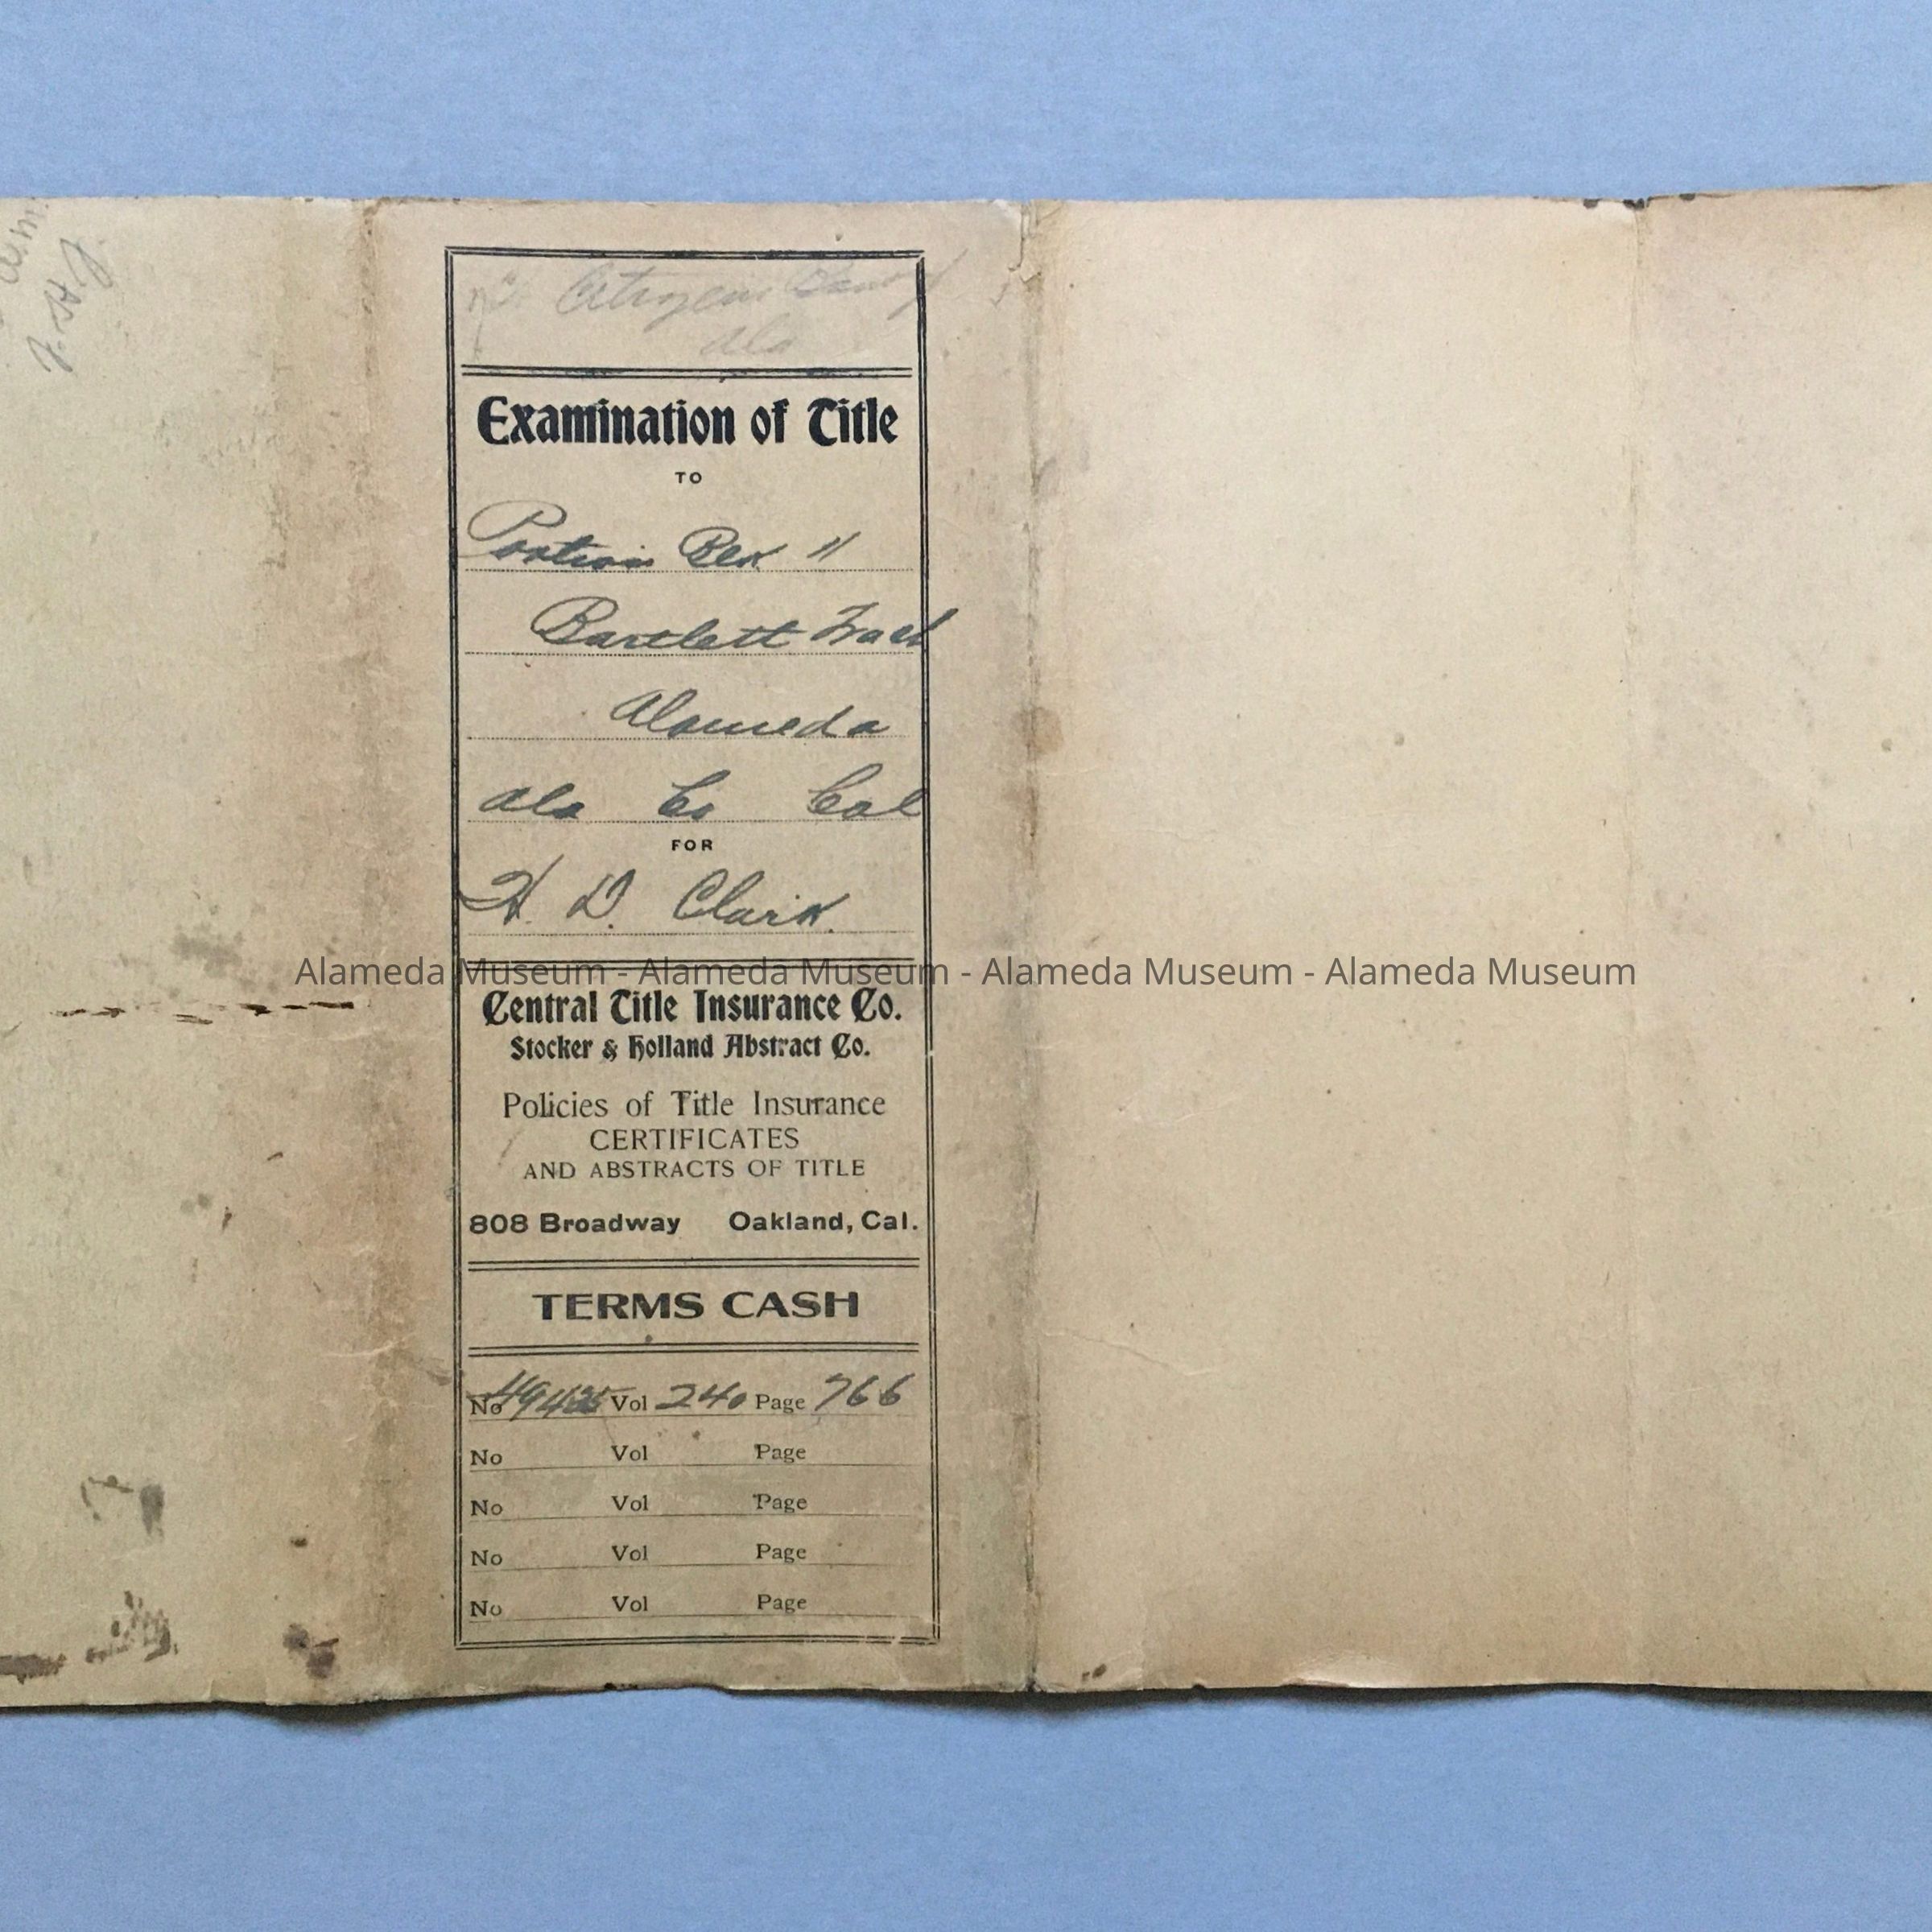 Citizens Bank
Ala
Examination of Title
TO
Portion Blk 11
Bartlett Tract
Alameda
Ala Co Cal
FOR
H. D. Clark.
Alameda Museum - Alameda Museum - Alameda Museum - Alameda Museum
Central Title Insurance Co.
Stocker & Holland Abstract Co.
Policies of Title Insurance
CERTIFICATES
AND ABSTRACTS OF TITLE
808 Broadway Oakland, Cal.
TERMS CASH
No Vol 240 Page 766
No Vol Page
No Vol Page
No Vol Page
No Vol Page